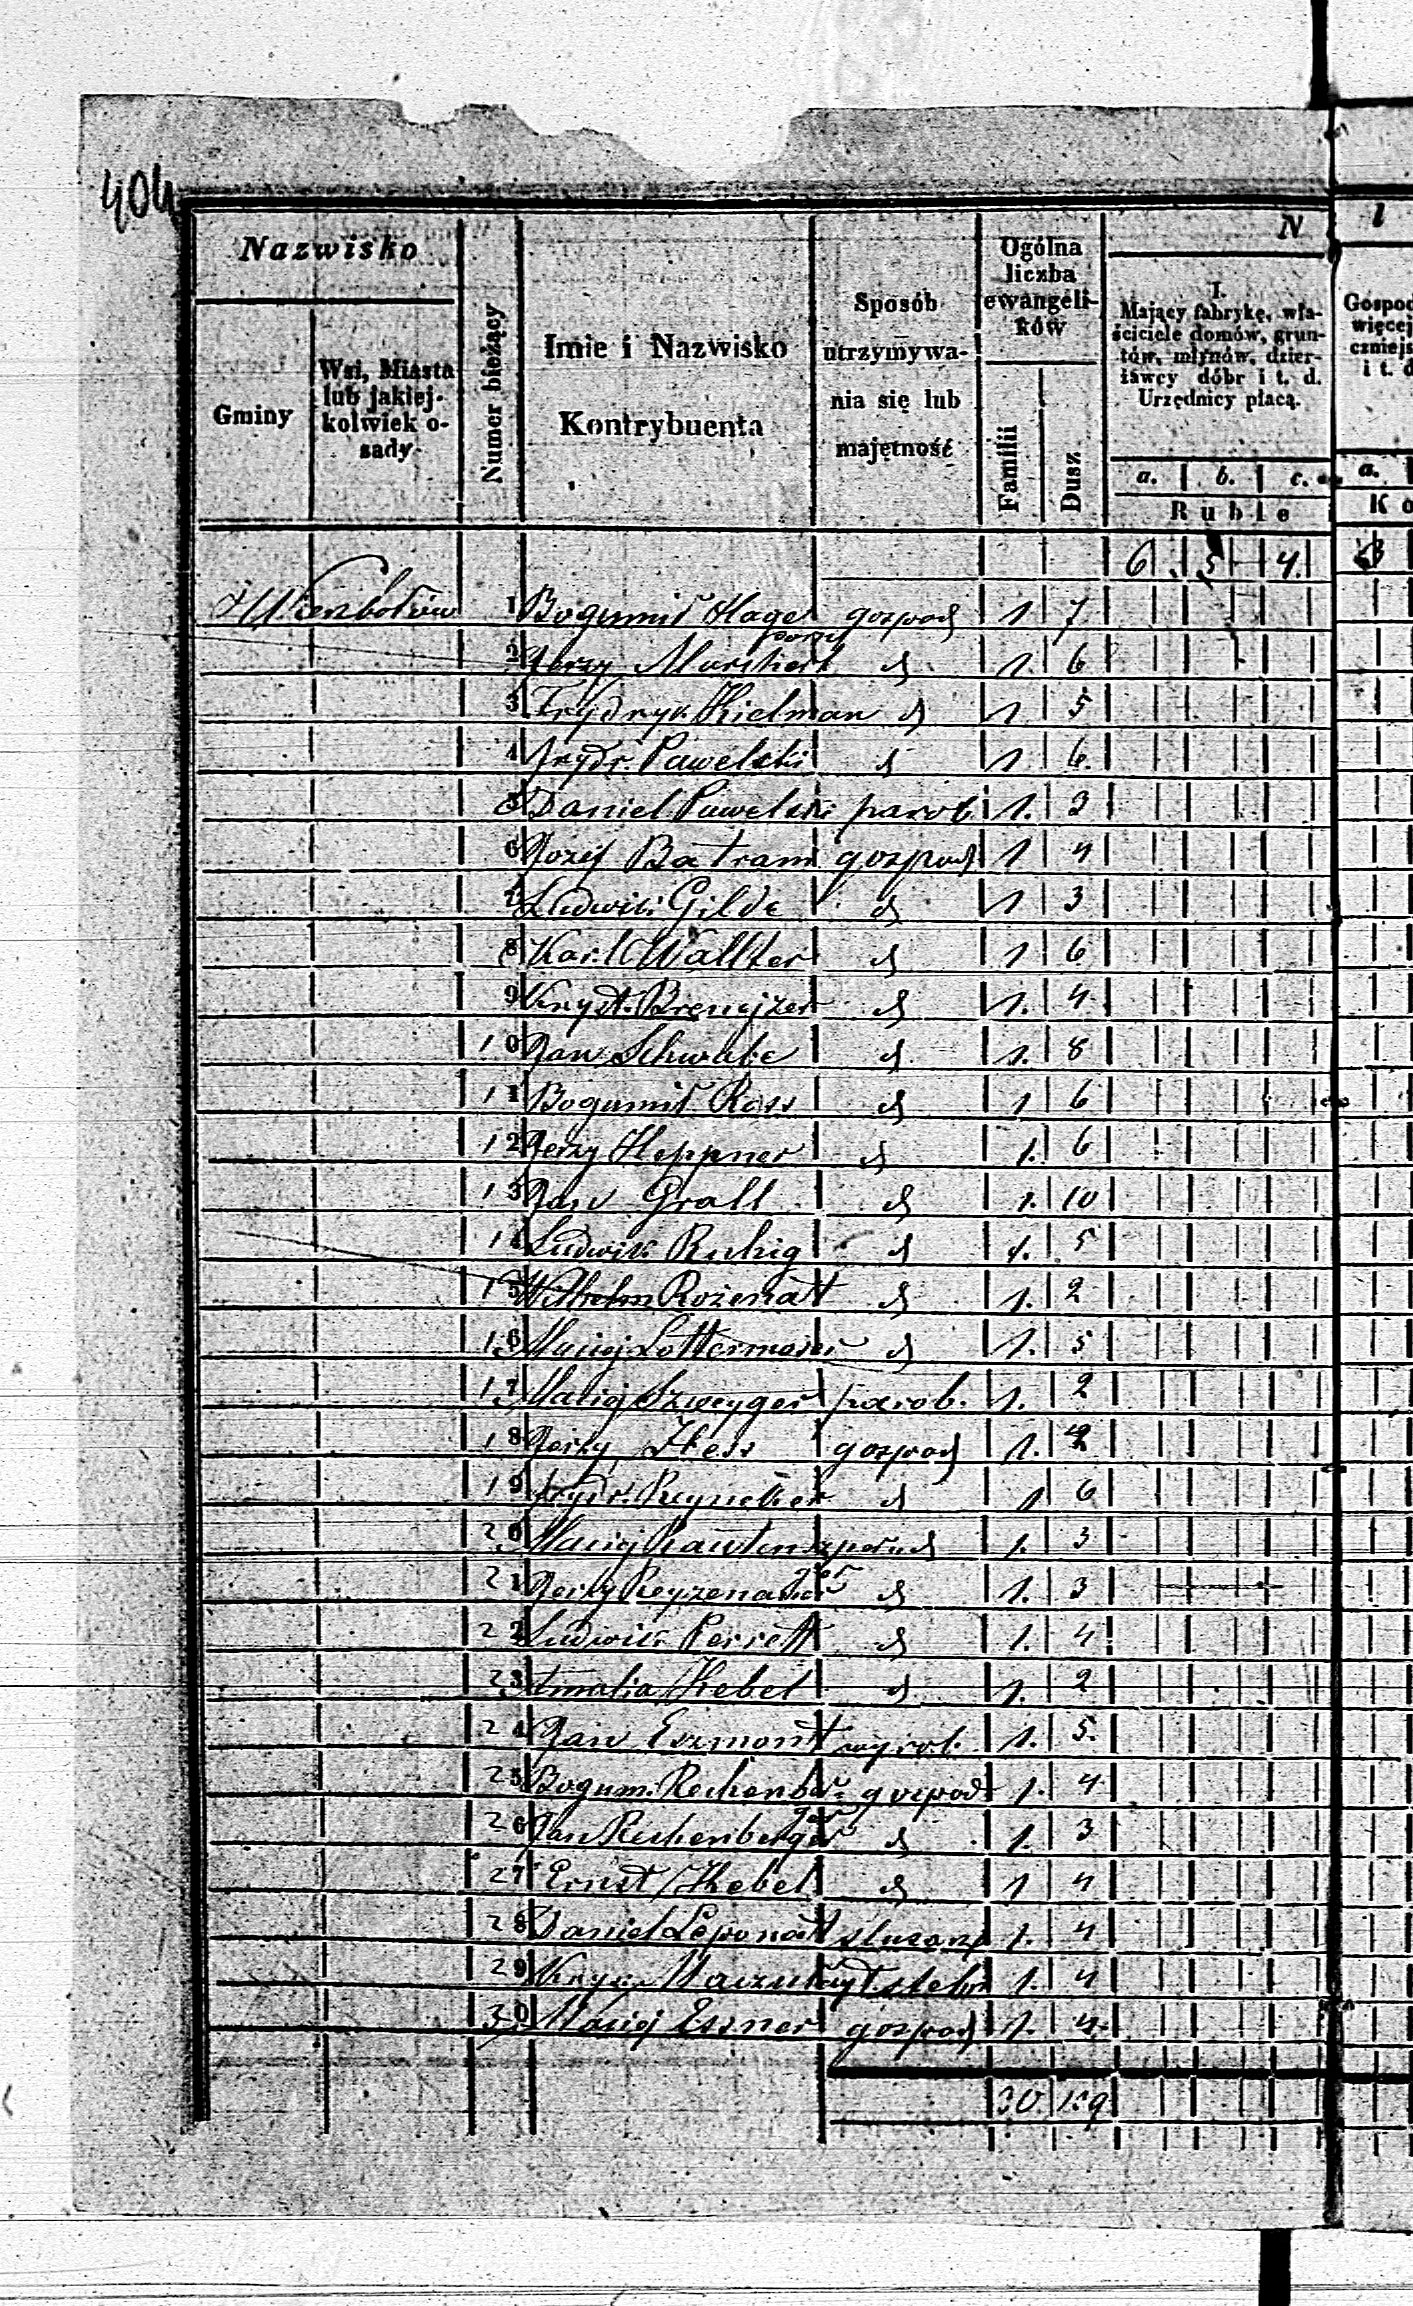 404
Nazwisko
Gminy
Wsi, Miasta lub jakiej-kolwiek o-sady
Numer bieżący
Imie i Nazwisko Kontrybuenta
Sposób utrzymywa-nia się lub majętność
Ogólna liczba ewangeli-ków
Familii
Dusz
N
I. Mający fabrykę, wła-ściciele domów, grun-tów, młynów, dzier-żawcy dóbr i t. d. Urzędnicy płacą.
a. b. c.
Ruble
6 5 4
1 Bogumił Hage gospod 1. 7
2 Jerzy d 1. 6
3 Frydryk Kielman d 1 5
4 Frydr. Pawelski d 1 6.
5 Daniel Pawelski parob. 1. 3
6 Józef Batram gospod 1 4
7 Ludwik Gilde d 1 3
8 Karl Wallter d 1 6
9 Kryst. Brenejzer d 1. 4
10 Jan Schwabe d 1. 8
11 Bogumił Ross d 1 6
12 Jerzy Heppner d 1. 6
13 Jan Grall d 1. 10
14 Ludwik Ruhig d 1. 5
15 Wilhelm Rożenatt d 1. 2
16 Maciej Lottermoser d 1. 5
17 Maciej Szweyger parob. 1. 2
18 Jerzy Hess gospod 1.
19 Frydr. Reyneker d 1 6
20 Maciej d 1. 3
21 Jerzy d 1. 3
22 Ludwik Perrett d 1. 4
23 Amalia Hebel d 1. 2
24 Jan Eszmontt wyrob. 1. 5.
25 Bogum. Rechenber. gospod 1. 4
26 Jan Rechenberger d 1. 3
27 Ernst Hebel d 1 4
28 Daniel Leponatt 1. 4
29 1. 4
30 Maciej Essner gospod 1. 4.
30 129